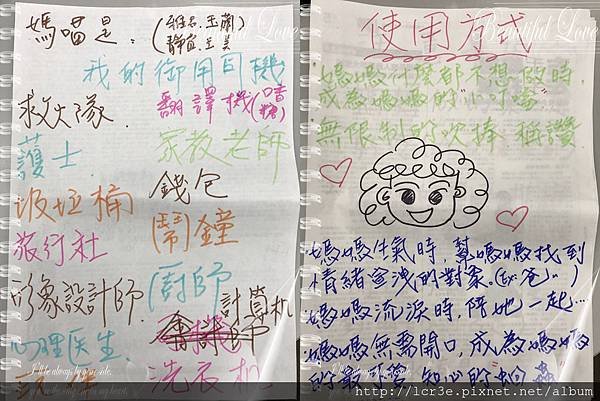 媽喵是:
我的御用司機
救火隊.
翻譯機
護士
家教老師
垃圾桶
錢包
旅行社
鬧鐘
形象設計師.
廚師
計算机
心理医生.
洗衣机
Beautiful Love
使用方式
媽媽什麼都不想做時,
成為媽媽的"小叮噹"
無限制的吹捧 稱讚
媽媽生氣時,幫媽媽找到
情緒宣洩的對象.(Ex:爸..)
媽媽流淚時,陪她一起...
媽媽無需開口,成為媽媽
知心的"蛔蟲"
http://lcr3e.pixnet.net/album